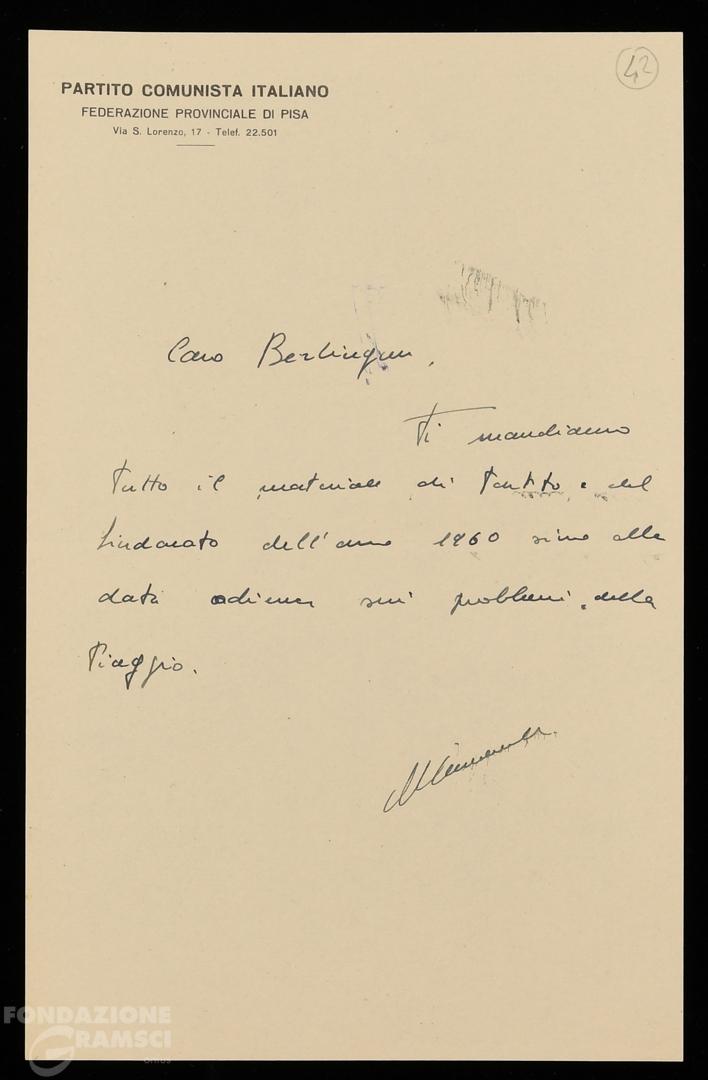 42
PARTITO COMUNISTA ITALIANO
FEDERAZIONE PROVINCIALE DI PISA
Via S. Lorenzo, 17 - Telef. 22.501
Caro Berlinguer,
Ti mandiamo
tutto il materiale di Partito e del
Sindacato dell'anno 1960 sino alla
data odierna sui problemi della
Piaggio.
FONDAZIONE
GRAMSCI
onlus